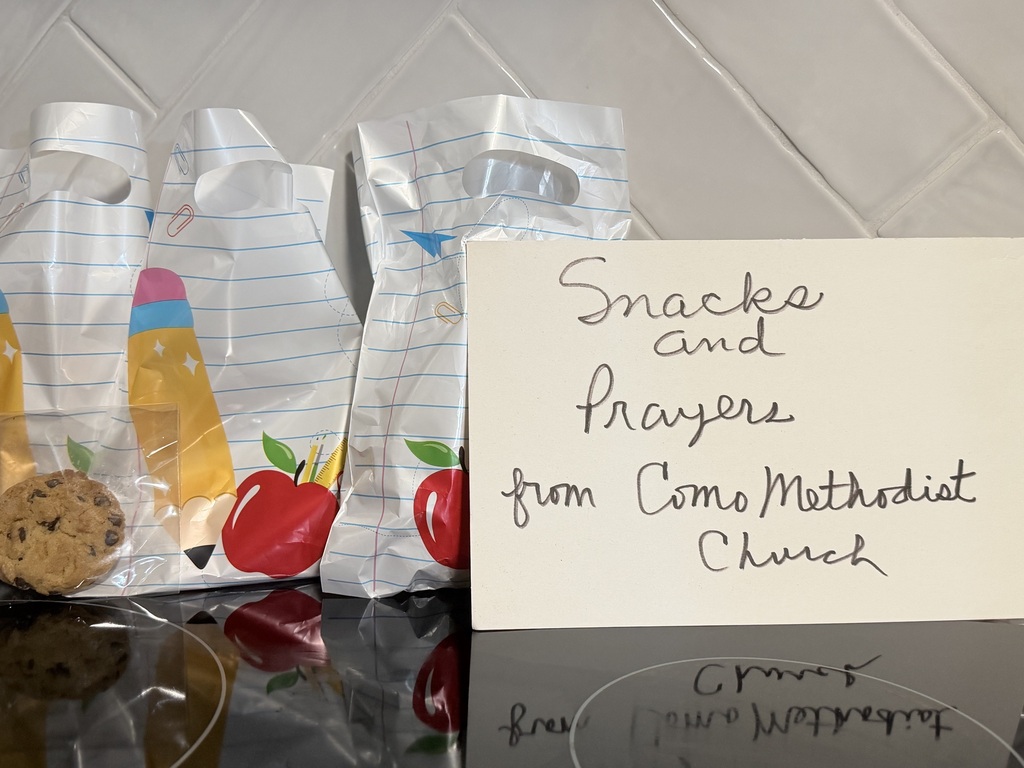 Snacks
and
Prayers
from Como Methodist
Church